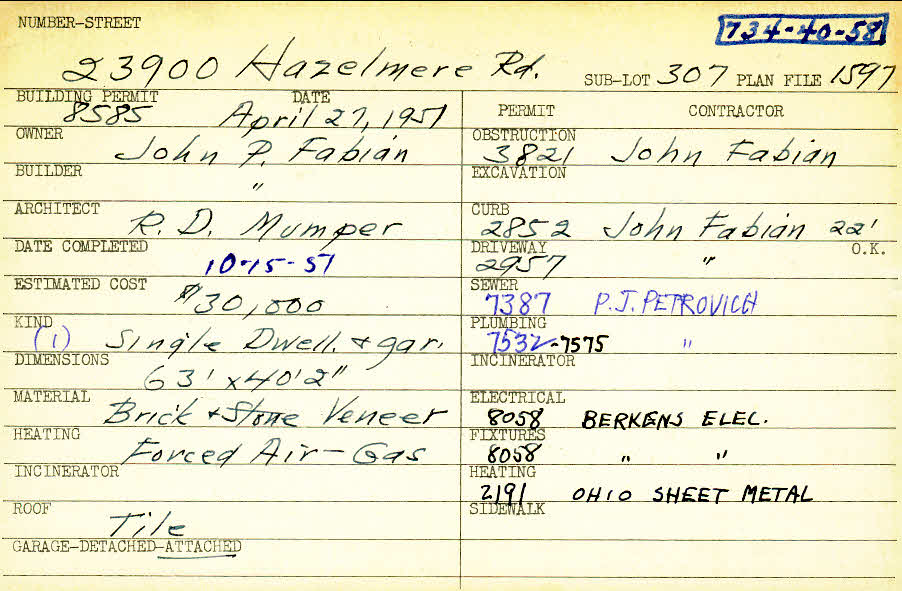 NUMBER-STREET 734-40-58
23900 Hazelmere Rd. SUB-LOT 307 PLAN FILE 1597
BUILDING PERMIT DATE
8585 April 27, 1951
OWNER
John P. Fabian
BUILDER
"
ARCHITECT
R. D. Mumper
DATE COMPLETED
10-15-51
ESTIMATED COST
$30,000
KIND
(1) Single Dwell. + gar.
DIMENSIONS
63' x 40'2"
MATERIAL
Brick + Stone Veneer
HEATING
Forced Air - Gas
INCINERATOR
ROOF
Tile
GARAGE-DETACHED-ATTACHED
PERMIT CONTRACTOR
OBSTRUCTION
3821 John Fabian
EXCAVATION
CURB
2852 John Fabian 22'
DRIVEWAY O.K.
2957 "
SEWER
7387 P.J. PETROVICH
PLUMBING
7532-7575 "
INCINERATOR
ELECTRICAL
8058 BERKENS ELEC.
FIXTURES
8058 " "
HEATING
2191 OHIO SHEET METAL
SIDEWALK